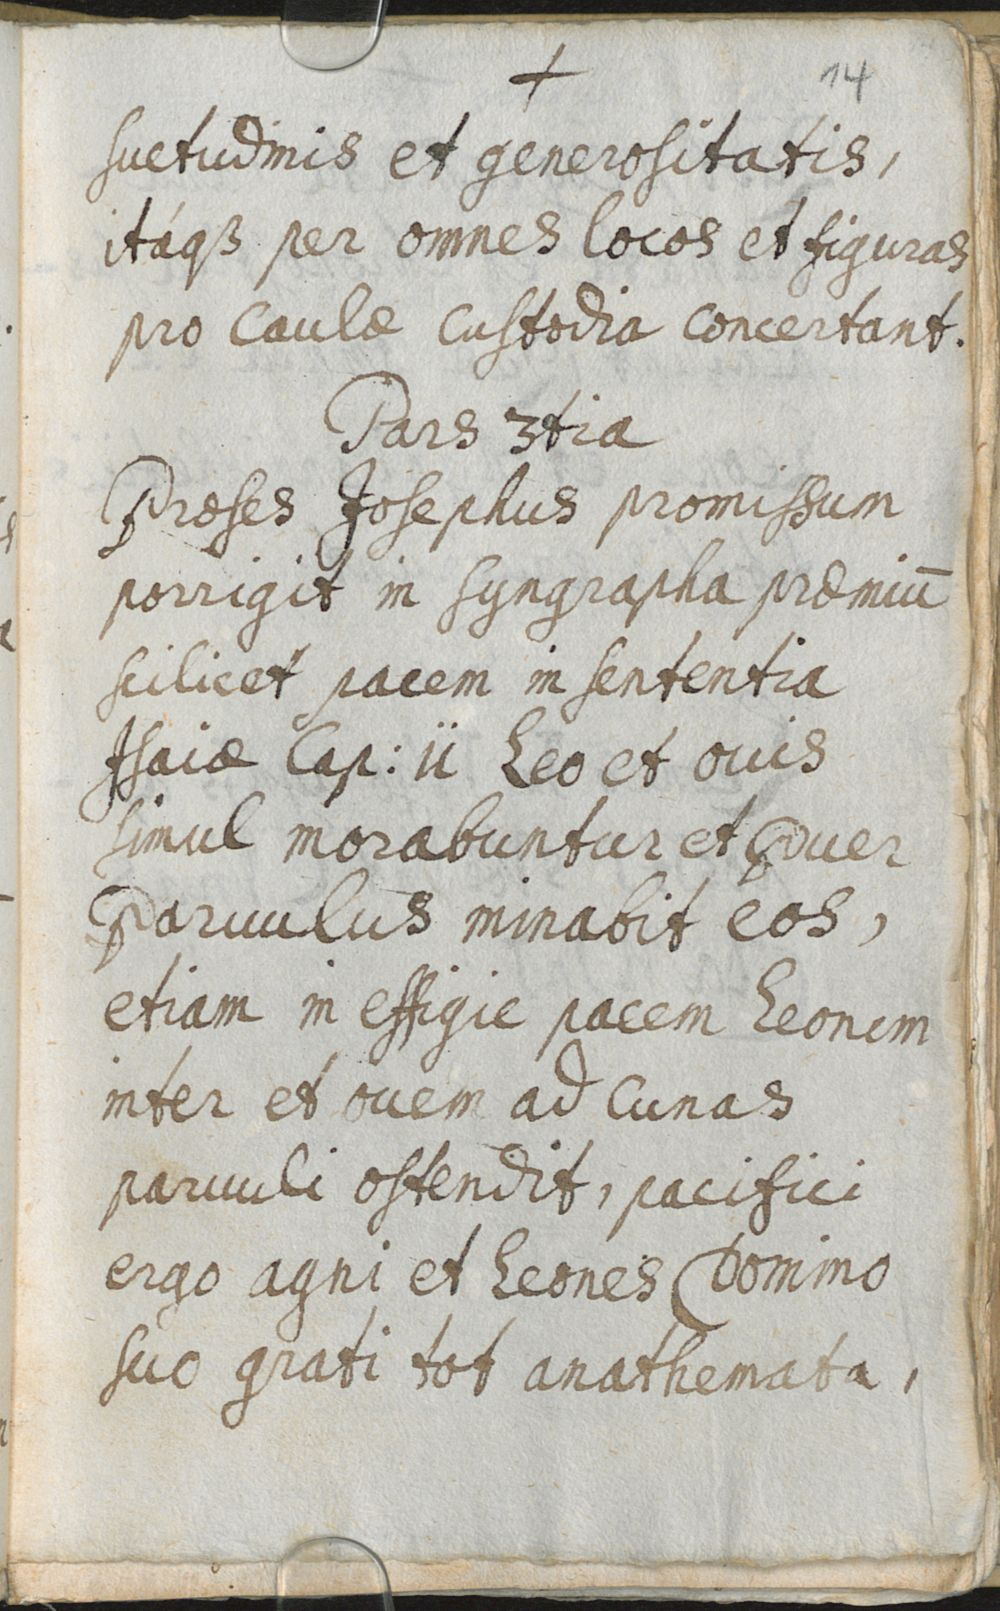 + 14
suetudinis et generositatis,
itáqꝫ per omnes locos et figuras
pro Caulæ Custodia Concertant.
Pars 3tia
Præses Josephus promissum
porrigit in syngrapha præmiū
scilicet pacem in sententia
Jsaiæ Cap: ii Leo et ouis
simul morabuntur et Puer
Paruulus minabit eos,
etiam in effigie pacem Leonem
inter et ouem ad Cunas
paruuli ostendit, pacifici
ergo agni et Leones Domino
suo grati tot anathemata,